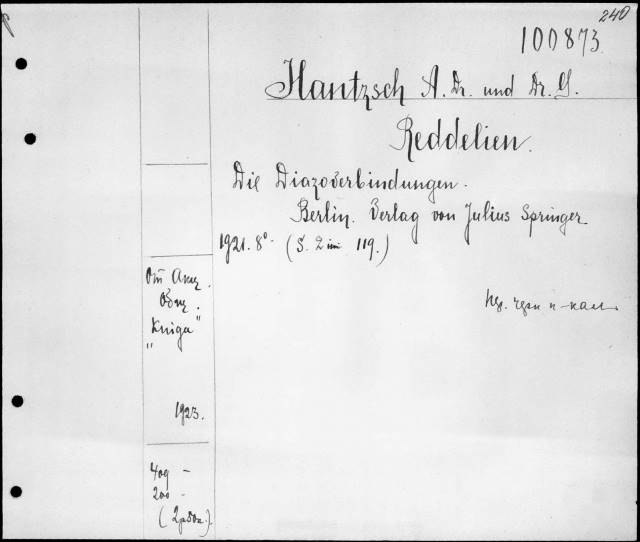 240
100873
Hantzsch A. Dr. und Dr. G.
Reddelien.
Die Diazoverbindungen.
Berlin. Verlag von Julius Springer
1921. 8°. (S. 119.)
От
"Kniga"
1923.
409 -
200 -